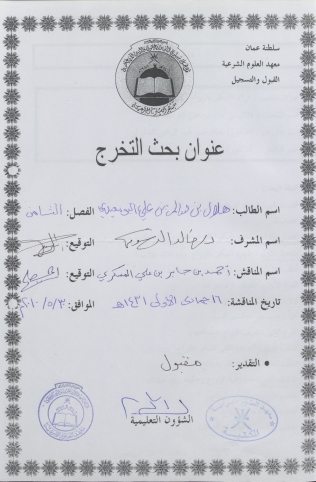 سلطنة عمان
معهد العلوم الشرعية
القبول والتسجيل
عنوان بحث التخرج
اسم الطالب: هلال بن علي البوسعيدي الفصل: الثامن
اسم المشرف: د. خالد التوقيع:
اسم المناقش: أحمد بن جابر بن علي المسكري التوقيع:
تاريخ المناقشة: ١٦ جمادى الأولى ١٤٣١هـ الموافق: ٢٠١٠/٥/٣
• التقدير: مقبول
الشؤون التعليمية